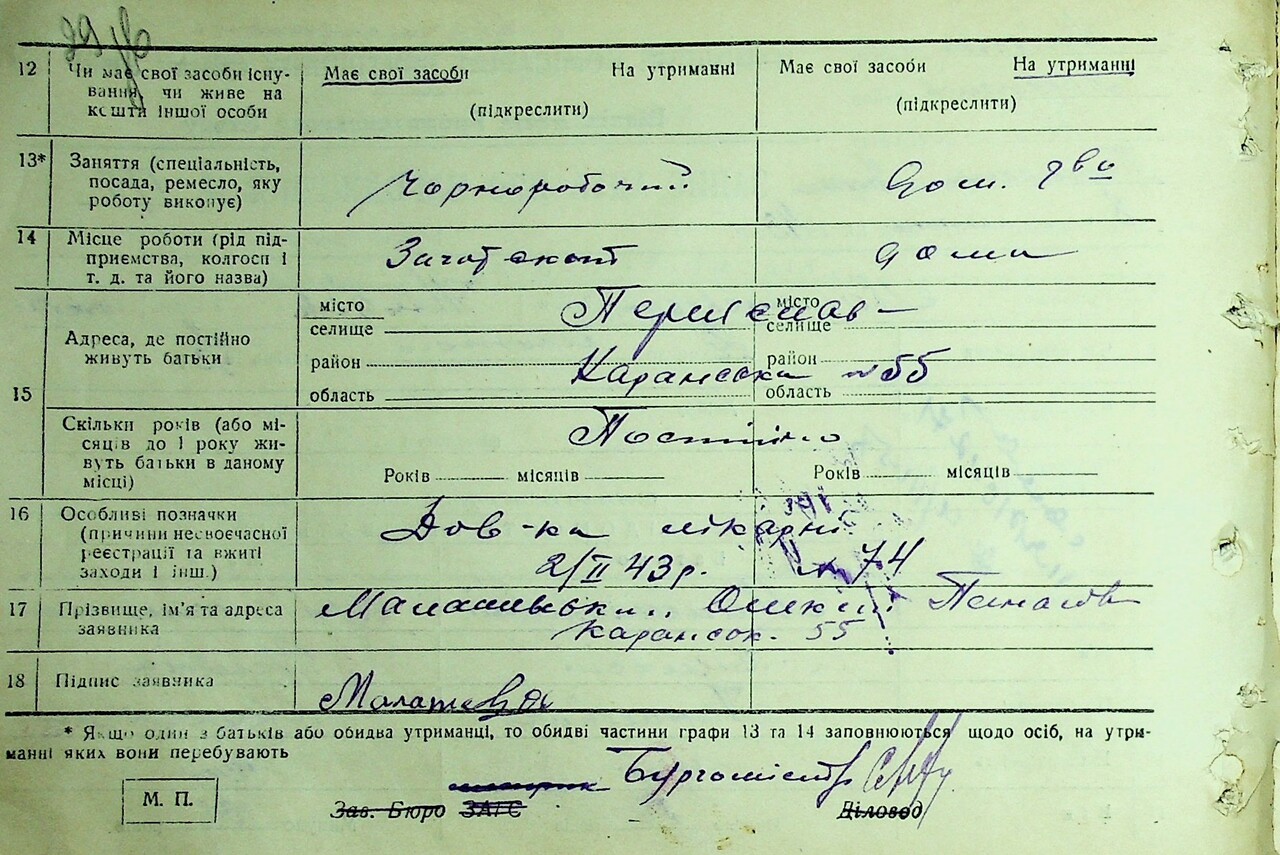 12 Чи має свої засоби існу- Має свої засоби На утриманні Має свої засоби На утриманні
вання, чи живе на
кошти іншої особи (підкреслити) (підкреслити)
13* Заняття (спеціальність,
посада, ремесло, яку Чорноробочий Дом.
роботу виконує)
14 Місце роботи (рід під-
приємства, колгосп і Заготскот дома
т. д. та його назва)
15 Адреса, де постійно живуть батьки
місто Переяслав місто
селище селище
район Каранська №55 район
область область
Скільки років (або мі-
сяців до 1 року жи- Постійно
вуть батьки в даному
місці) Років місяців Років місяців
16 Особливі позначки
(причини несвоєчасної Дов-ка лікарні
реєстрації та вжиті
заходи і інш.) 2/II 43р. № 74
17 Прізвище, ім'я та адреса
заявника Каранськ. 55
18 Підпис заявника
* Якщо один з батьків або обидва утриманці, то обидві частини графи 13 та 14 заповнюються щодо осіб, на утри-
манні яких вони перебувають
Бургомістр
М. П. Зав. Бюро ЗАГС Діловод